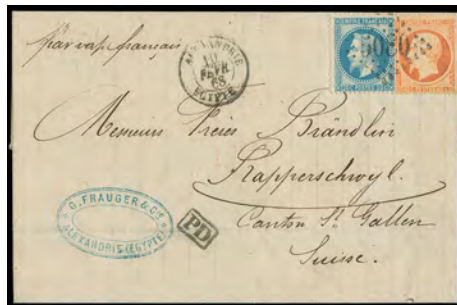 par vap. français
ALEXANDRIE
10
FEVR
68
EGYPTE
EMPIRE FRANÇAIS
5080
Messieurs Frères Brändlin
Rapperschwyl.
Canton St Gallen
Suisse.
O. FRAUGER & Cie
ALEXANDRIE (EGYPTE)
PD